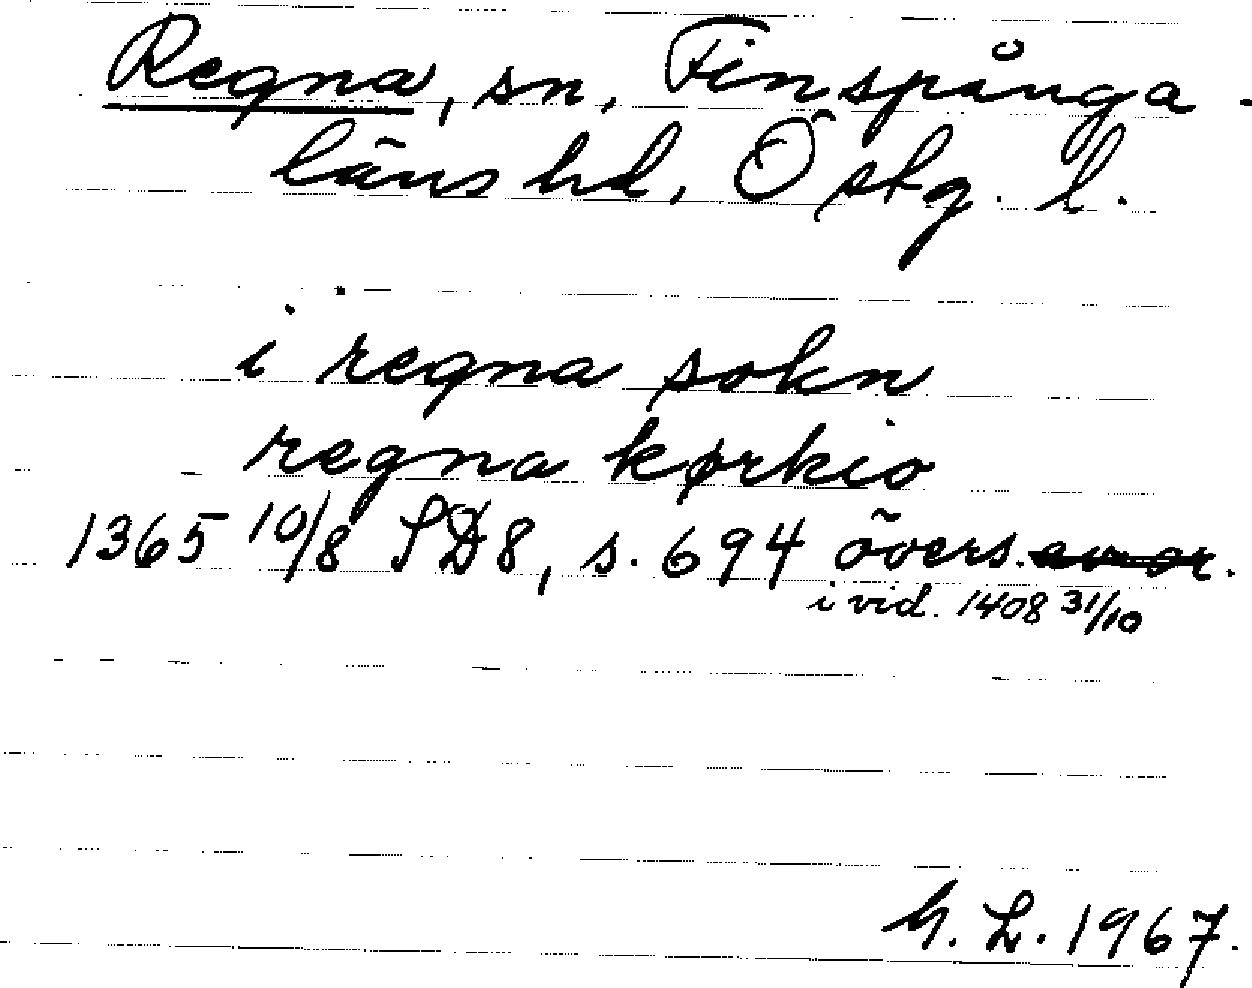 Regna, sn, Finspånga-
läns hd, Östg. l.
i regna sokn
regna kørkio
1365 10/8 SD8, s. 694 övers.
i vid. 1408 31/10
G. L. 1967.